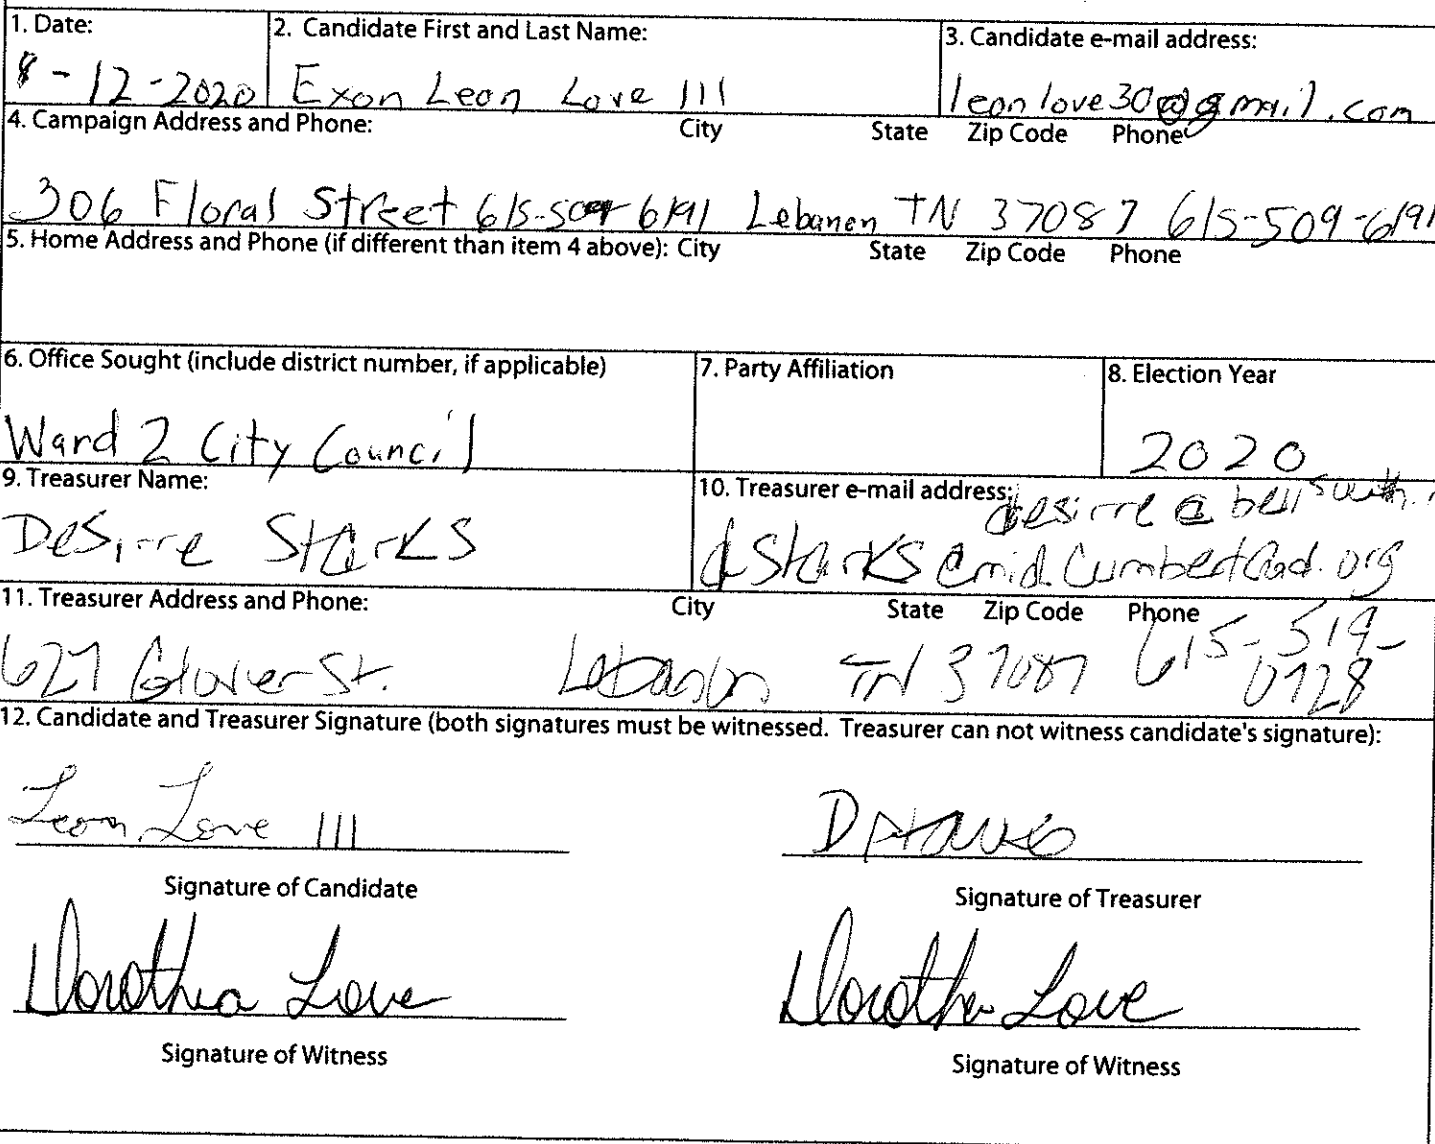 1. Date: 2. Candidate First and Last Name: 3. Candidate e-mail address:
8-12-2020 Exon Leon Love III leonlove30@gmail.com
4. Campaign Address and Phone: City State Zip Code Phone
306 Floral Street 615-509-6191 Lebanen TN 37087 615-509-6191
5. Home Address and Phone (if different than item 4 above): City State Zip Code Phone
6. Office Sought (include district number, if applicable) 7. Party Affiliation 8. Election Year
Ward 2 City Council 2020
9. Treasurer Name: 10. Treasurer e-mail address:
desirre @ bell
Desirre Starks dstarks@mid.
11. Treasurer Address and Phone: City State Zip Code Phone
627 Glover St. Lebanon TN 37087 615-519-
0728
12. Candidate and Treasurer Signature (both signatures must be witnessed. Treasurer can not witness candidate's signature):
Leon Love III
Signature of Candidate Signature of Treasurer
Dorothea Love Dorothea Love
Signature of Witness Signature of Witness